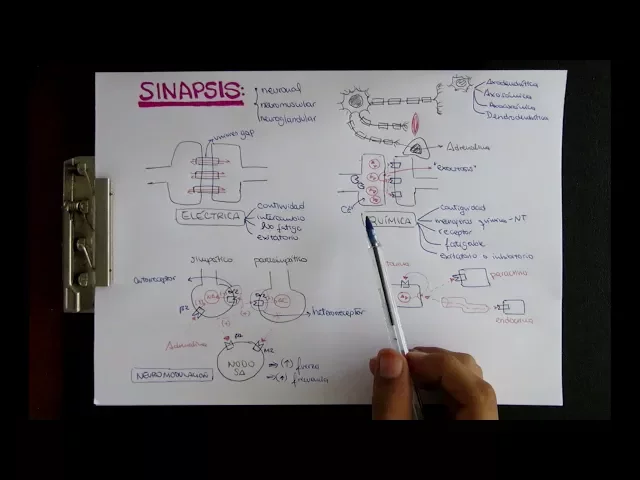 SINAPSIS:
neuronal
neuromuscular
neuroglandular
Axodendrítica
Axosomática
Axoaxónica
Dendrodendrítica
uniones gap
Adrenalina
"exocitosis"
ELÉCTRICA
continuidad
intercambio
No fatiga
excitatoria
QUÍMICA
contigüidad
mensajero químico-NT
receptor
fatigable
excitatoria o inhibitoria
simpático
parasimpático
autoreceptor
heteroreceptor
paracrina
endocrina
Adrenalina
β2
M2
NODO
SA
(↑) fuerza
(↑) frecuencia
NEUROMODULACIÓN